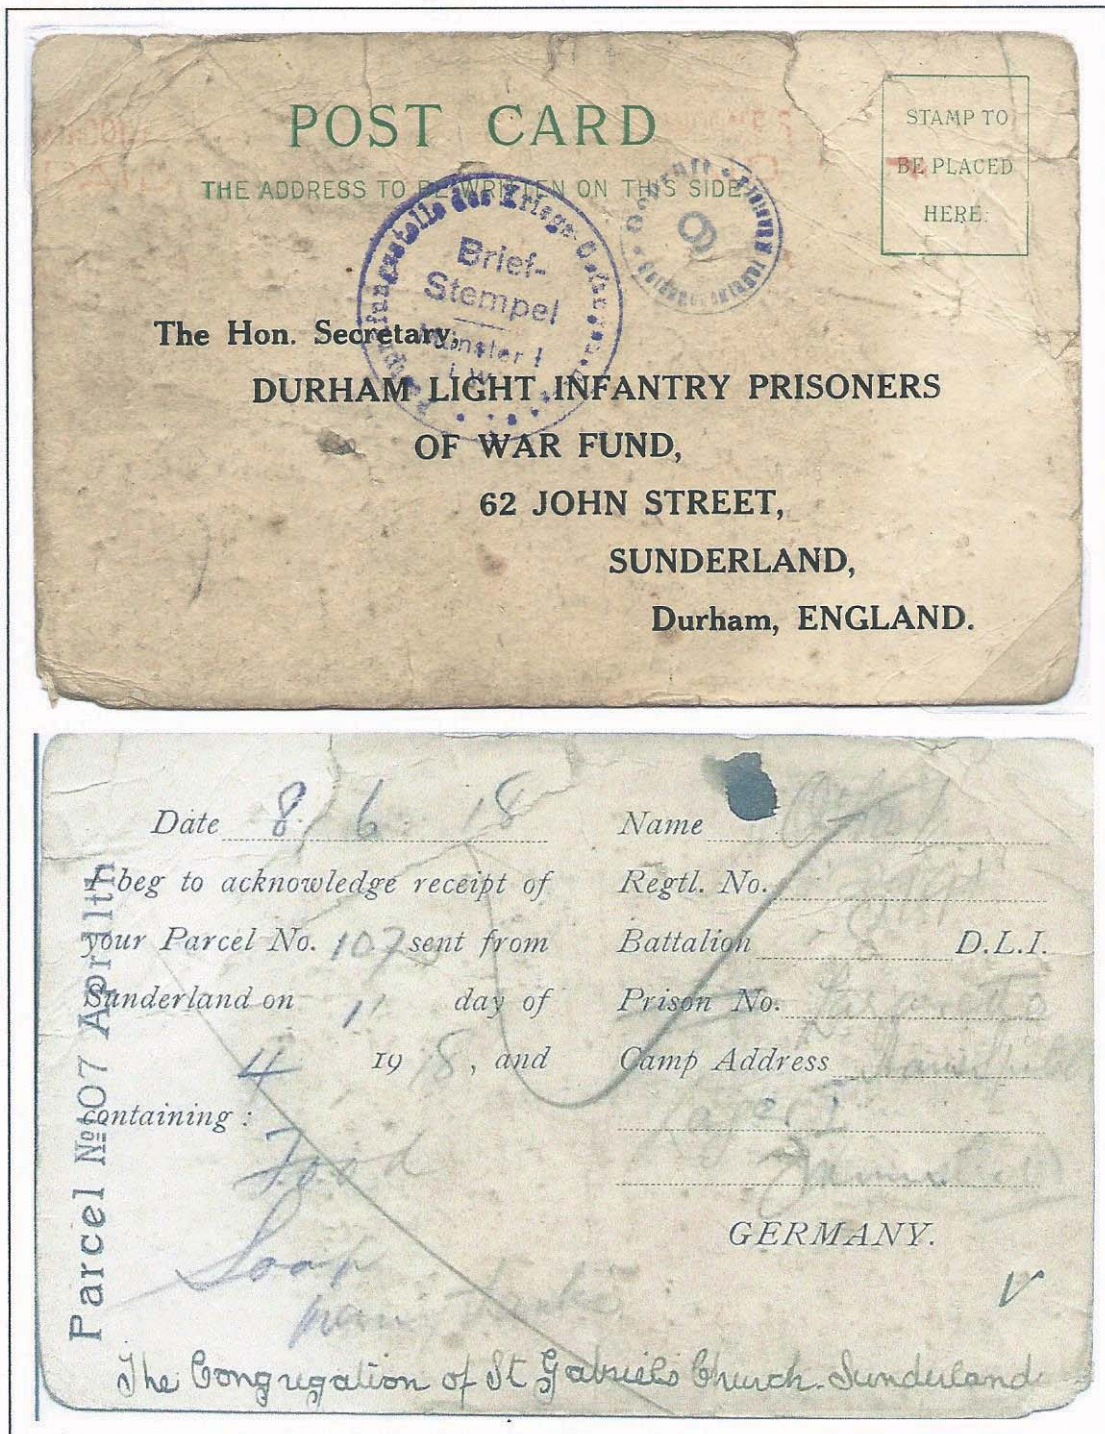 POST CARD
THE ADDRESS TO BE WRITTEN ON THIS SIDE.
STAMP TO
BE PLACED
HERE.
Brief-
Stempel
Münster I
i. W.
9
The Hon. Secretary,
DURHAM LIGHT INFANTRY PRISONERS
OF WAR FUND,
62 JOHN STREET,
SUNDERLAND,
Durham, ENGLAND.
Date 8/6 18
I beg to acknowledge receipt of
your Parcel No. 107 sent from
Sunderland on 11 day of
4 19 8, and
containing :
Food
Soap
many thanks
Name
Regtl. No.
Battalion 8 D.L.I.
Prison No.
Camp Address
Lager I
GERMANY.
Parcel No 107 April 11th
The Congregation of St Gabriels Church. Sunderland